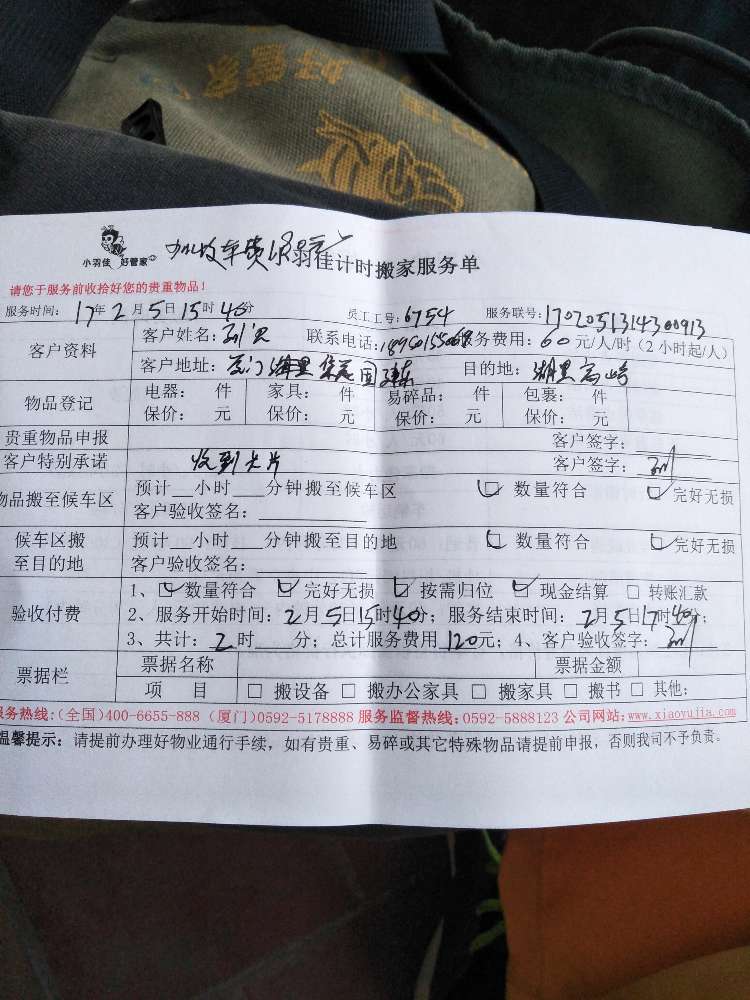 好管家
小羽佳 好管家
加收车费 羽佳计时搬家服务单
请您于服务前收拾好您的贵重物品！
服务时间： 17年2月5日15时40分 员工工号：6754 服务联号：1702051314300913
客户资料
客户姓名： 联系电话： 服务费用：60元/人/时（2小时起/人）
客户地址：厦门湖里 目的地：湖里高崎
物品登记
电器： 件 家具： 件 易碎品： 件 包裹： 件
保价： 元 保价： 元 保价： 元 保价： 元
贵重物品申报 客户签字：
客户特别承诺 收到卡片 客户签字：
物品搬至候车区
预计__小时___分钟搬至候车区 数量符合 完好无损
客户验收签名：
候车区搬至目的地
预计__小时___分钟搬至目的地 数量符合 完好无损
客户验收签名：
验收付费
1、数量符合 完好无损 按需归位 现金结算 □ 转账汇款
2、服务开始时间：2月5日15时40分；服务结束时间：2月5日17时40分；
3、共计：2时___分；总计服务费用120元；4、客户验收签字：
票据栏
票据名称 票据金额
项 目 □ 搬设备 □ 搬办公家具 □ 搬家具 □ 搬书 □ 其他：
服务热线：(全国)400-6655-888（厦门)0592-5178888 服务监督热线：0592-5888123 公司网站：www.xiaoyujia.com
温馨提示：请提前办理好物业通行手续，如有贵重、易碎或其它特殊物品请提前申报，否则我司不予负责。